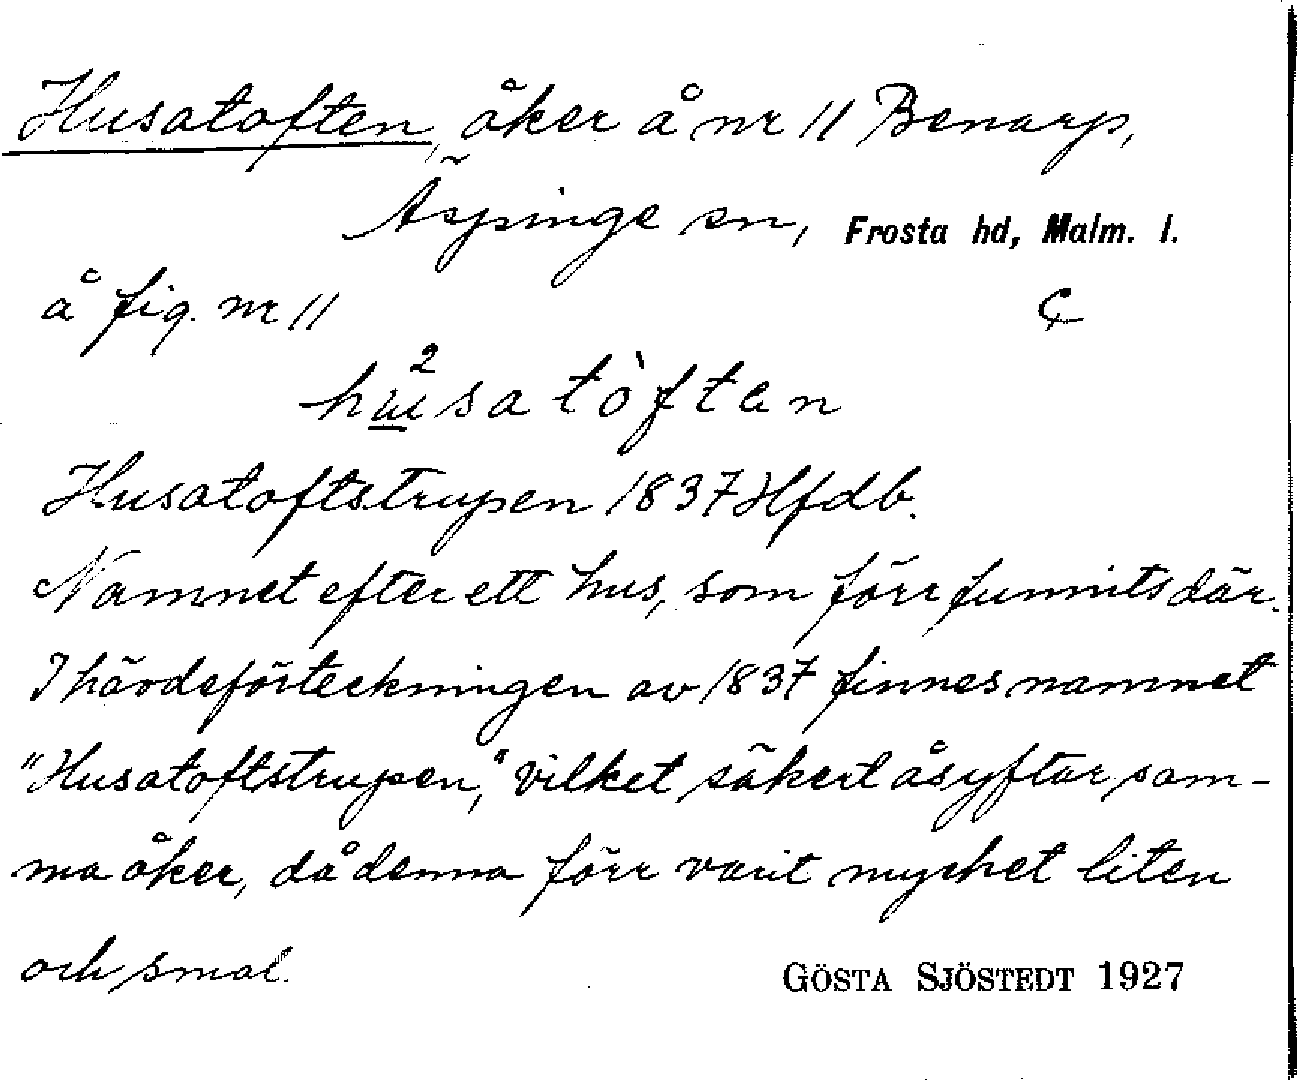 Husatoften, åker å nr 11 Benarp,
Äspinge sn, Frosta hd, Malm. l.
å fig. nr 11
tòftan
Husatoftstrupen 1837 Hfdb.
Namnet efter ett hus, som förr funnits där.
I hävdeförteckningen av 1837 finnes namnet
"Husatoftstrupen," vilket säkert åsyftar sam-
ma åker, då denna förr varit mycket liten
och smal.
GÖSTA SJÖSTEDT 1927